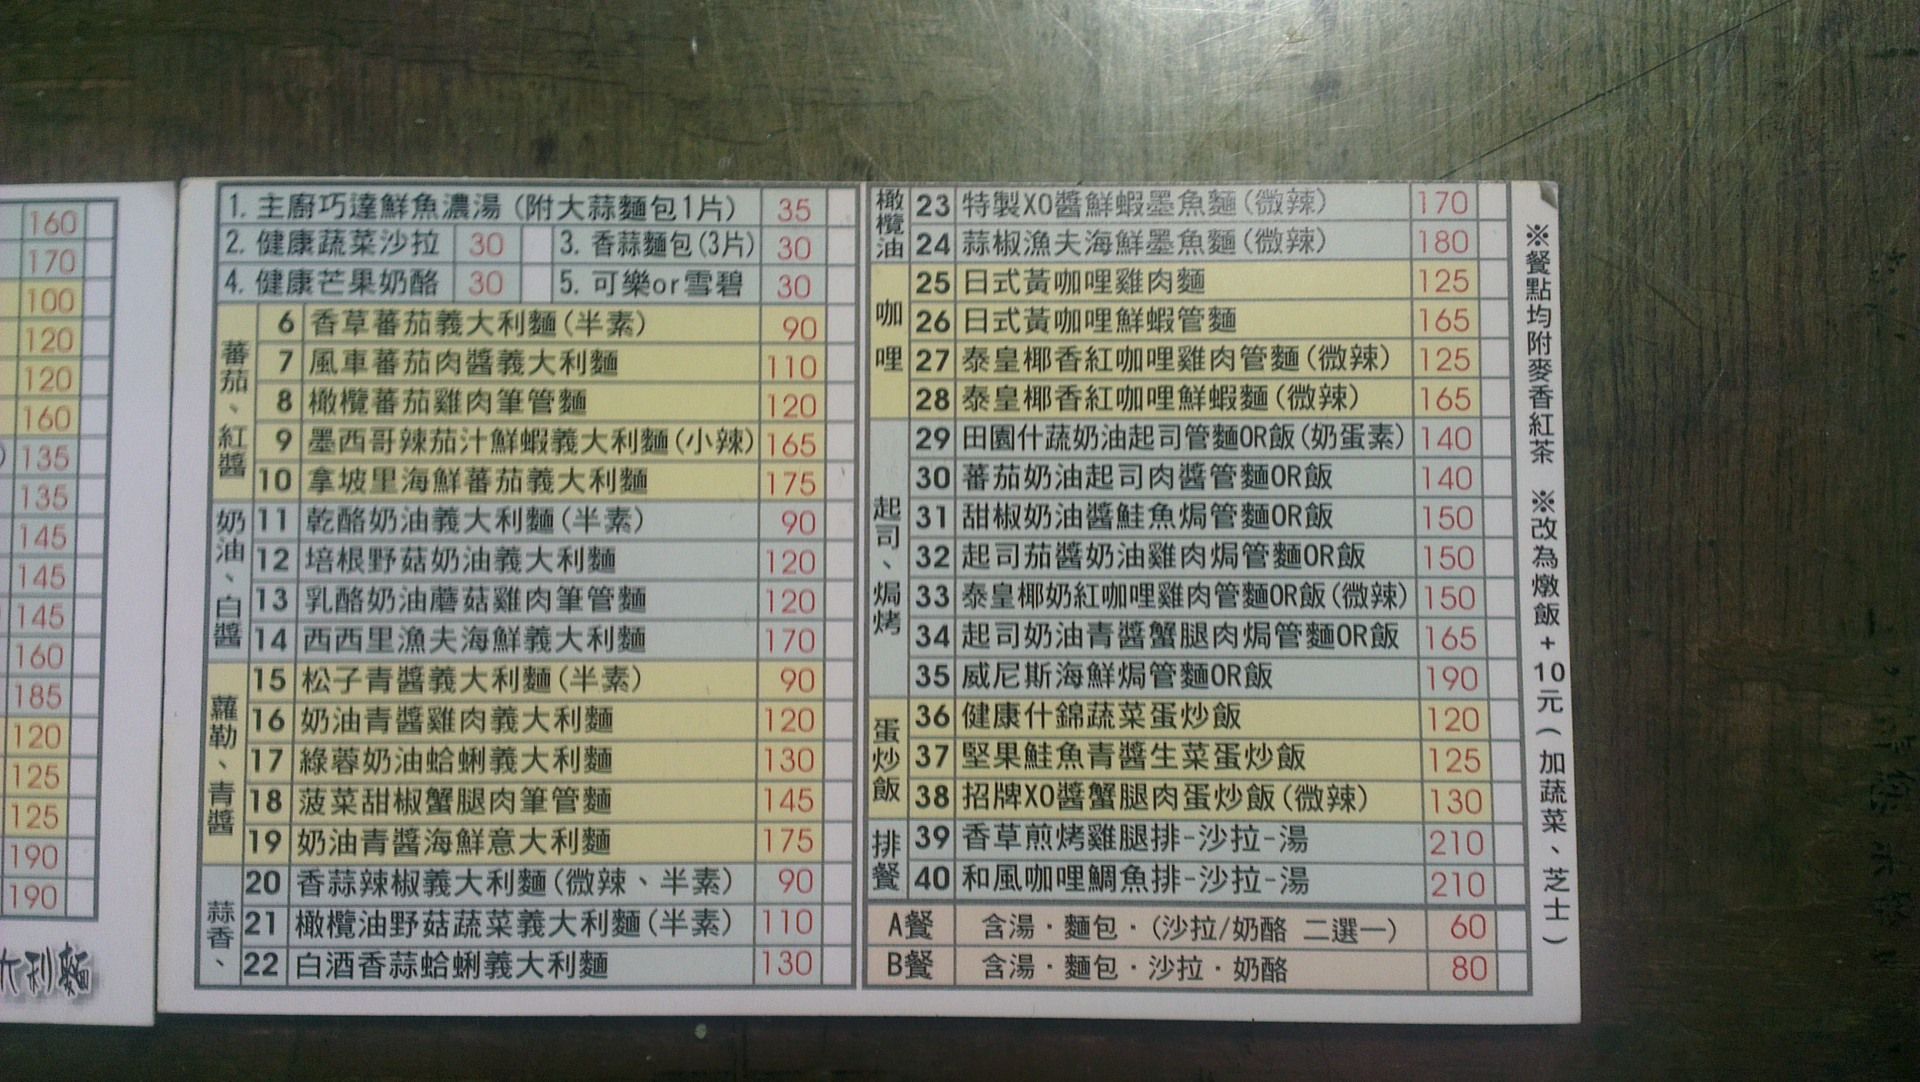 160
170
100
120
120
160
135
135
145
145
145
160
185
120
125
125
190
190
大利麵
1. 主廚巧達鮮魚濃湯(附大蒜麵包1片) 35
2. 健康蔬菜沙拉 30 3. 香蒜麵包(3片) 30
4. 健康芒果奶酪 30 5. 可樂or雪碧 30
蕃茄、紅醬
6 香草蕃茄義大利麵(半素) 90
7 風車蕃茄肉醬義大利麵 110
8 橄欖蕃茄雞肉筆管麵 120
9 墨西哥辣茄汁鮮蝦義大利麵(小辣) 165
10 拿坡里海鮮蕃茄義大利麵 175
奶油、白醬
11 乾酪奶油義大利麵(半素) 90
12 培根野菇奶油義大利麵 120
13 乳酪奶油蘑菇雞肉筆管麵 120
14 西西里漁夫海鮮義大利麵 170
蘿勒、青醬
15 松子青醬義大利麵(半素) 90
16 奶油青醬雞肉義大利麵 120
17 綠蓉奶油蛤蜊義大利麵 130
18 菠菜甜椒蟹腿肉筆管麵 145
19 奶油青醬海鮮意大利麵 175
蒜香、
20 香蒜辣椒義大利麵(微辣、半素) 90
21 橄欖油野菇蔬菜義大利麵(半素) 110
22 白酒香蒜蛤蜊義大利麵 130
橄欖油
23 特製XO醬鮮蝦墨魚麵(微辣) 170
24 蒜椒漁夫海鮮墨魚麵(微辣) 180
咖哩
25 日式黃咖哩雞肉麵 125
26 日式黃咖哩鮮蝦管麵 165
27 泰皇椰香紅咖哩雞肉管麵(微辣) 125
28 泰皇椰香紅咖哩鮮蝦麵(微辣) 165
起司、焗烤
29 田園什蔬奶油起司管麵OR飯(奶蛋素) 140
30 蕃茄奶油起司肉醬管麵OR飯 140
31 甜椒奶油醬鮭魚焗管麵OR飯 150
32 起司茄醬奶油雞肉焗管麵OR飯 150
33 泰皇椰奶紅咖哩雞肉管麵OR飯(微辣) 150
34 起司奶油青醬蟹腿肉焗管麵OR飯 165
35 威尼斯海鮮焗管麵OR飯 190
蛋炒飯
36 健康什錦蔬菜蛋炒飯 120
37 堅果鮭魚青醬生菜蛋炒飯 125
38 招牌XO醬蟹腿肉蛋炒飯(微辣) 130
排餐
39 香草煎烤雞腿排-沙拉-湯 210
40 和風咖哩鯛魚排-沙拉-湯 210
A餐 含湯・麵包・(沙拉/奶酪 二選一) 60
B餐 含湯・麵包・沙拉・奶酪 80
※餐點均附麥香紅茶 ※改為燉飯+10元(加蔬菜、芝士)